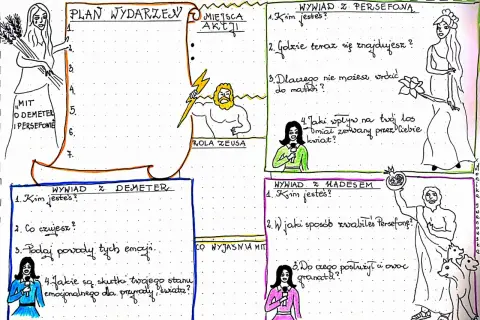 PLAN WYDARZEŃ
1.
2.
3.
4.
5.
6.
7.
MIT
O DEMETER
I PERSEFONIE
MIEJSCA
AKCJI
ROLA ZEUSA
CO WYJAŚNIA MIT
WYWIAD Z PERSEFONĄ
1. Kim jesteś?
2. Gdzie teraz się znajdujesz?
3. Dlaczego nie możesz wrócić
do matki?
4. Jaki wpływ na twój los
miał zerwany przez Ciebie
kwiat?
WYWIAD Z DEMETER
1. Kim jesteś?
2. Co czujesz?
3. Podaj powody tych emocji.
4. Jakie są skutki twojego stanu
emocjonalnego dla przyrody, świata?
WYWIAD Z HADESEM
1. Kim jesteś?
2. W jaki sposób zwabiłeś Persefonę?
3. Do czego posłużył ci owoc
granatu?